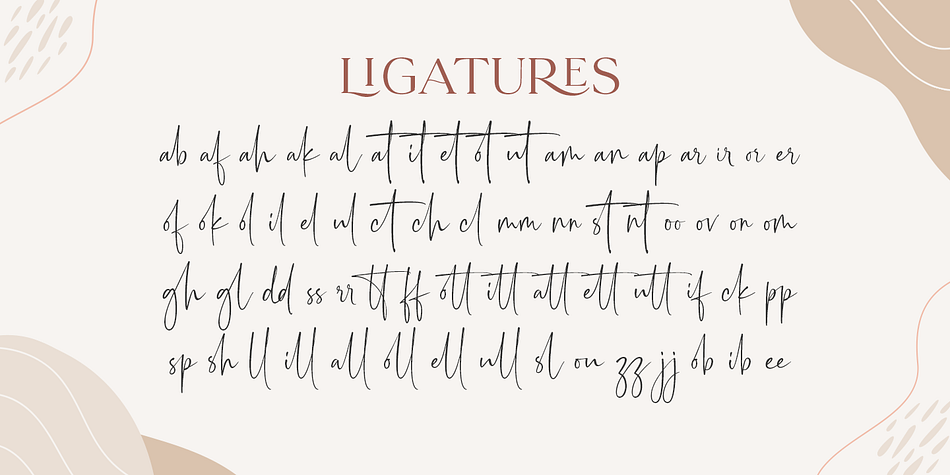 LIGATURES
ab af ah ak al at it et ot ut am an ap ar ir or er
of ok ol il el ul ct ch cl mm nn st nt oo ov on om
gh gl dd ss rr tt ff ott itt att ett utt if ck pp
sp sh ll ill all oll ell ull sl ou zz jj ob ib ee